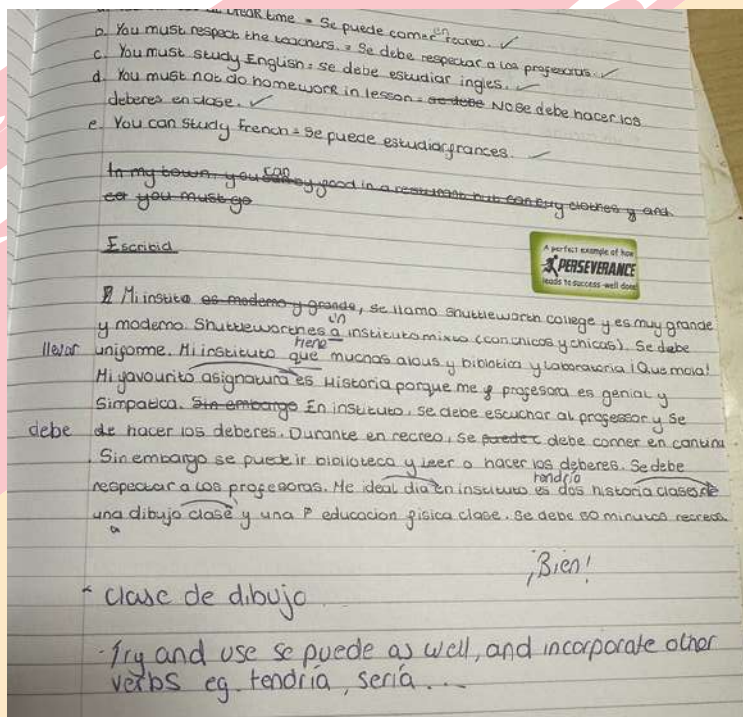 break time = Se puede comer en recreo. ✓
b. You must respect the teachers. = Se debe respectar a los profesoras. ✓
c. You must study English = se debe estudiar ingles. ✓
d. You must not do homework in lesson = se debe No Se debe hacer los
deberes en clase. ✓
e. You can study french = Se puede estudiar frances. ✓
In my town, you can buy good in a resturant but can buy clothes y and.
you must go
Escribid
A perfect example of how
PERSEVERANCE
leads to success - well done!
Mi instito es moderno y grande, se llamo Shuttleworth college y es muy grande
y moderno. Shuttleworth es a un instituto mixto (con chicos y chicas). Se debe
llevar uniforme. Mi instituto que tiene muchas alous y bibliotica y laboratoria ¡Que mola!
Mi favourito asignatura es Historia porque me profesora es genial y
Simpatica. Sin embargo En instituto, se debe escuchar al professor y se
debe de hacer los deberes. Durante en recreo, se puede debe comer en cantina
. Sin embargo se puede ir biblioteca y leer o hacer los deberes. Se debe
respectar a los profesoras. Me ideal dia en instituto es tendría dos historia clases de
una dibujo clase y una educacion fisica clase. Se debe 50 minutos recreos.
¡Bien!
* clase de dibujo
- Try and use se puede as well, and incorporate other
verbs eg. tendría, sería ...